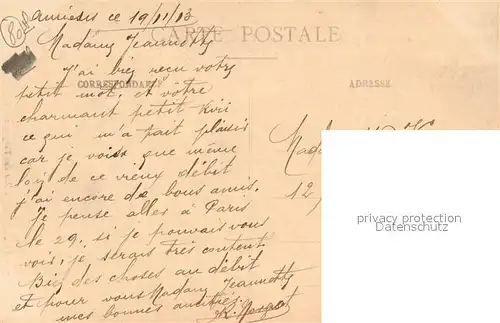 ce 19/11/13
Madame Jeannette
CARTE POSTALE
J'ai bien reçu votre
CORRESPONDANCE
ADRESSE
petit mot, et votre
charmant petit
ce qui m'a fait plaisir
car je vois que même
loin de ce vieux débit
j'ai encore de bons amis.
Je pense aller à Paris
le 29. si je pouvais vous
voir, je serais très content
Bien des choses au débit
et pour vous Madame Jeannette
mes bonnes amitiés.
Mada
12,
privacy protection
Datenschutz